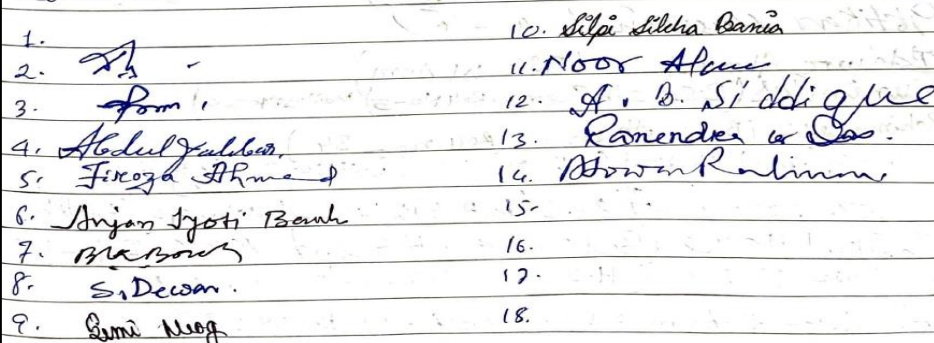 1.
2.
3.
4. Abdul Jabbar.
5. Firoza Ahmed
6. Anjan Jyoti Baruah
7. BK Borah
8. S. Dewan.
9. Rimi Neog
10. Silpi Silcha Bania
11. Noor Alam
12. A. B. Siddique
13. Ramendra Das.
14. Rahman
15.
16.
17.
18.